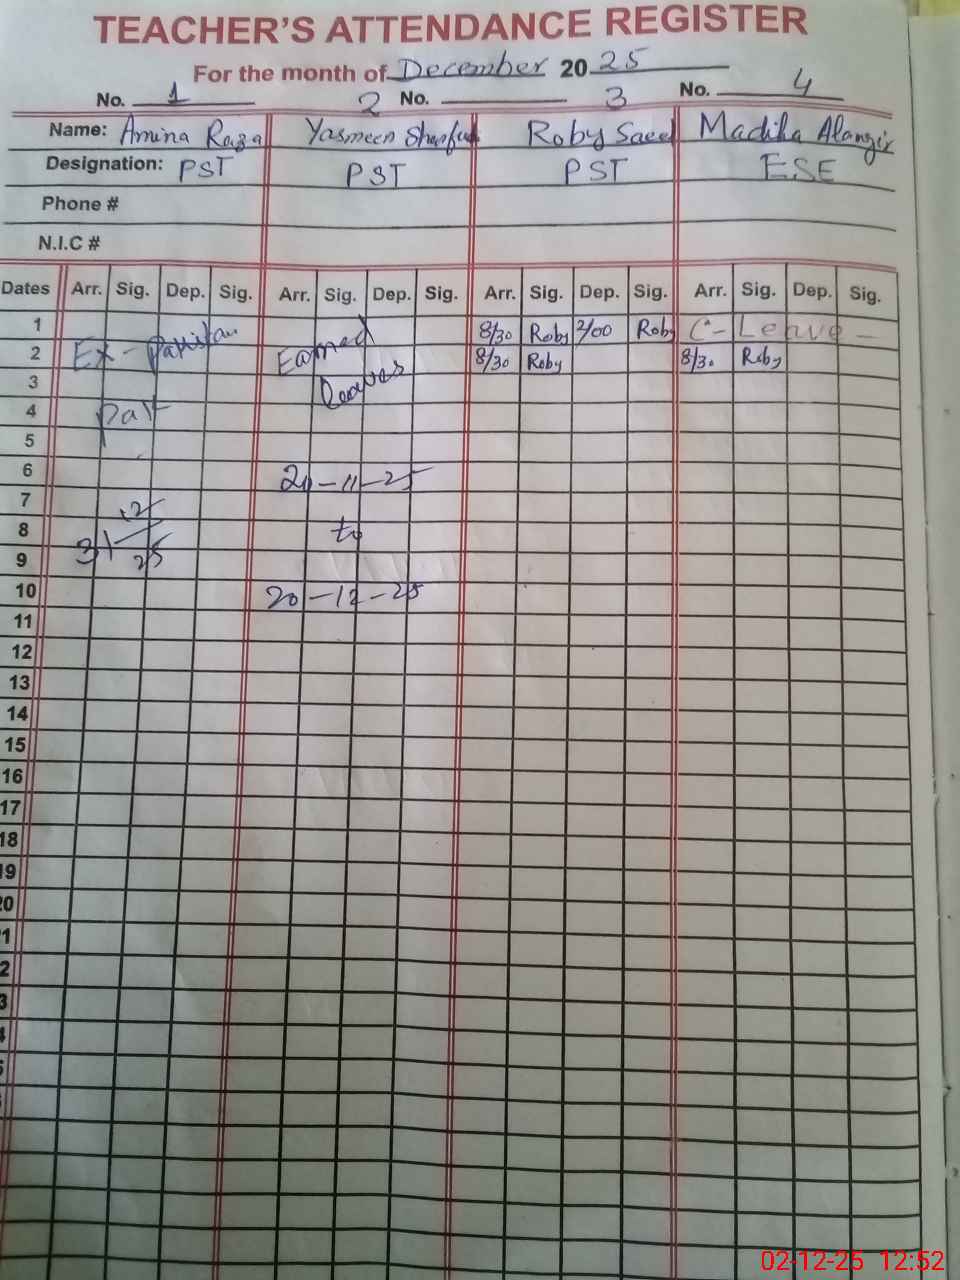 TEACHER'S ATTENDANCE REGISTER
For the month of December 2025
No. 1 2 No. 3 No. 4
Name: Amina Raza Yasmeen Roby Saeed Madiha Alamgir
Designation: PST PST PST ESE
Phone #
N.I.C #
Dates Arr. Sig. Dep. Sig. Arr. Sig. Dep. Sig. Arr. Sig. Dep. Sig. Arr. Sig. Dep. Sig.
1 8/30 Roby 2/00 Roby C-Leave-
2 Ex-Pakistan Earned 8/30 Roby 8/30 Roby
3 Leaves
4
5
6 -11-25
7
8 31/12/25 to
9
10 20-12-25
11
12
13
14
15
16
17
18
19
20
1
2
3
4
5
02-12-25 12:52